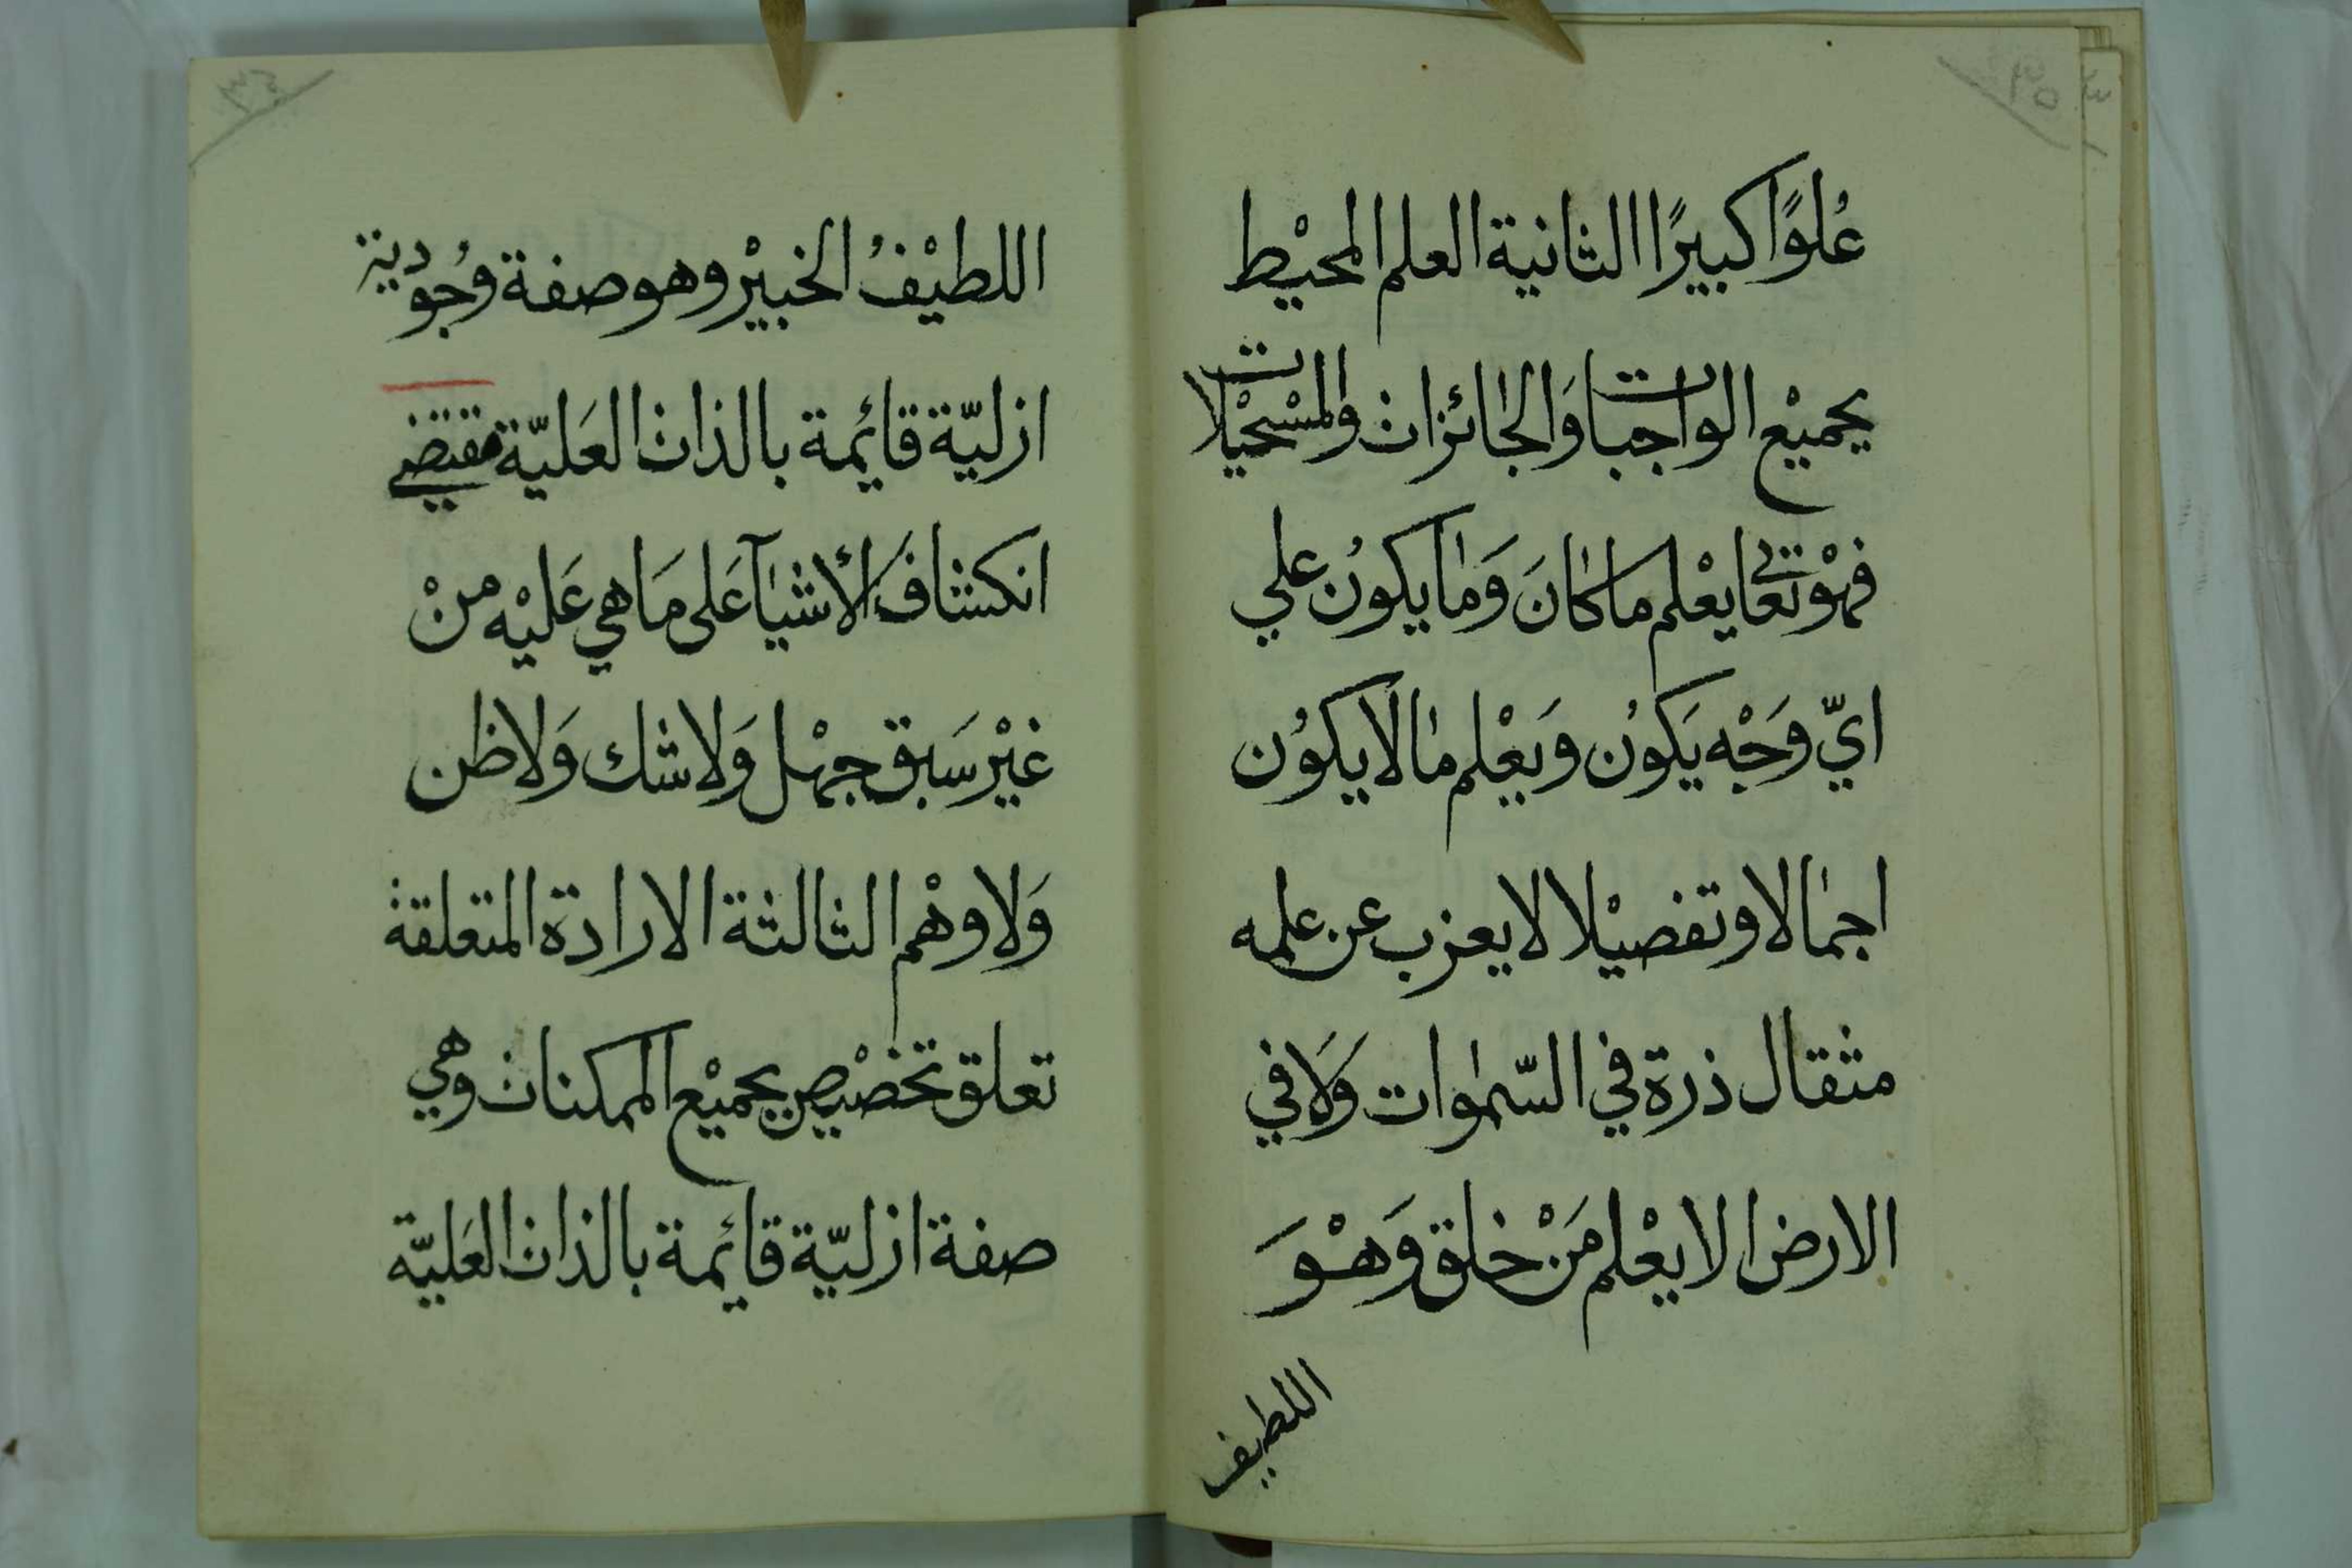 ٣٥
عُلوًا كبيرًا الثانية العلم المحيْط
بجميْع الواجبات وَالجائزات والمسْتحيْلات
فهْو تعالى يعْلم ما كانَ وَما يكونُ علي
ايّ وَجْه يَكونُ وَيعْلم ما لا يكوُن
اجمالا وتفصيْلا لا يعزب عن علمه
مثقال ذرة في السّموات وَلَا في
الارض الا يعْلم مَنْ خلق وَهْوَ
اللطيف
اللطيْفُ الخبيْر وهو صفة وُجُودية
ازليّة قائمة بالذات العَليّة مقتضي
انكشافَ الأشيآ عَلى مَا هي عَليْه منْ
غيْر سَبق جهْل وَلا شك وَلا ظن
وَلا وهْم الثالثة الارادة المتعلقة
تعلق تخصْيص بجميْع الممكنات وهي
صفة ازليّة قائمة بالذات العَليّة